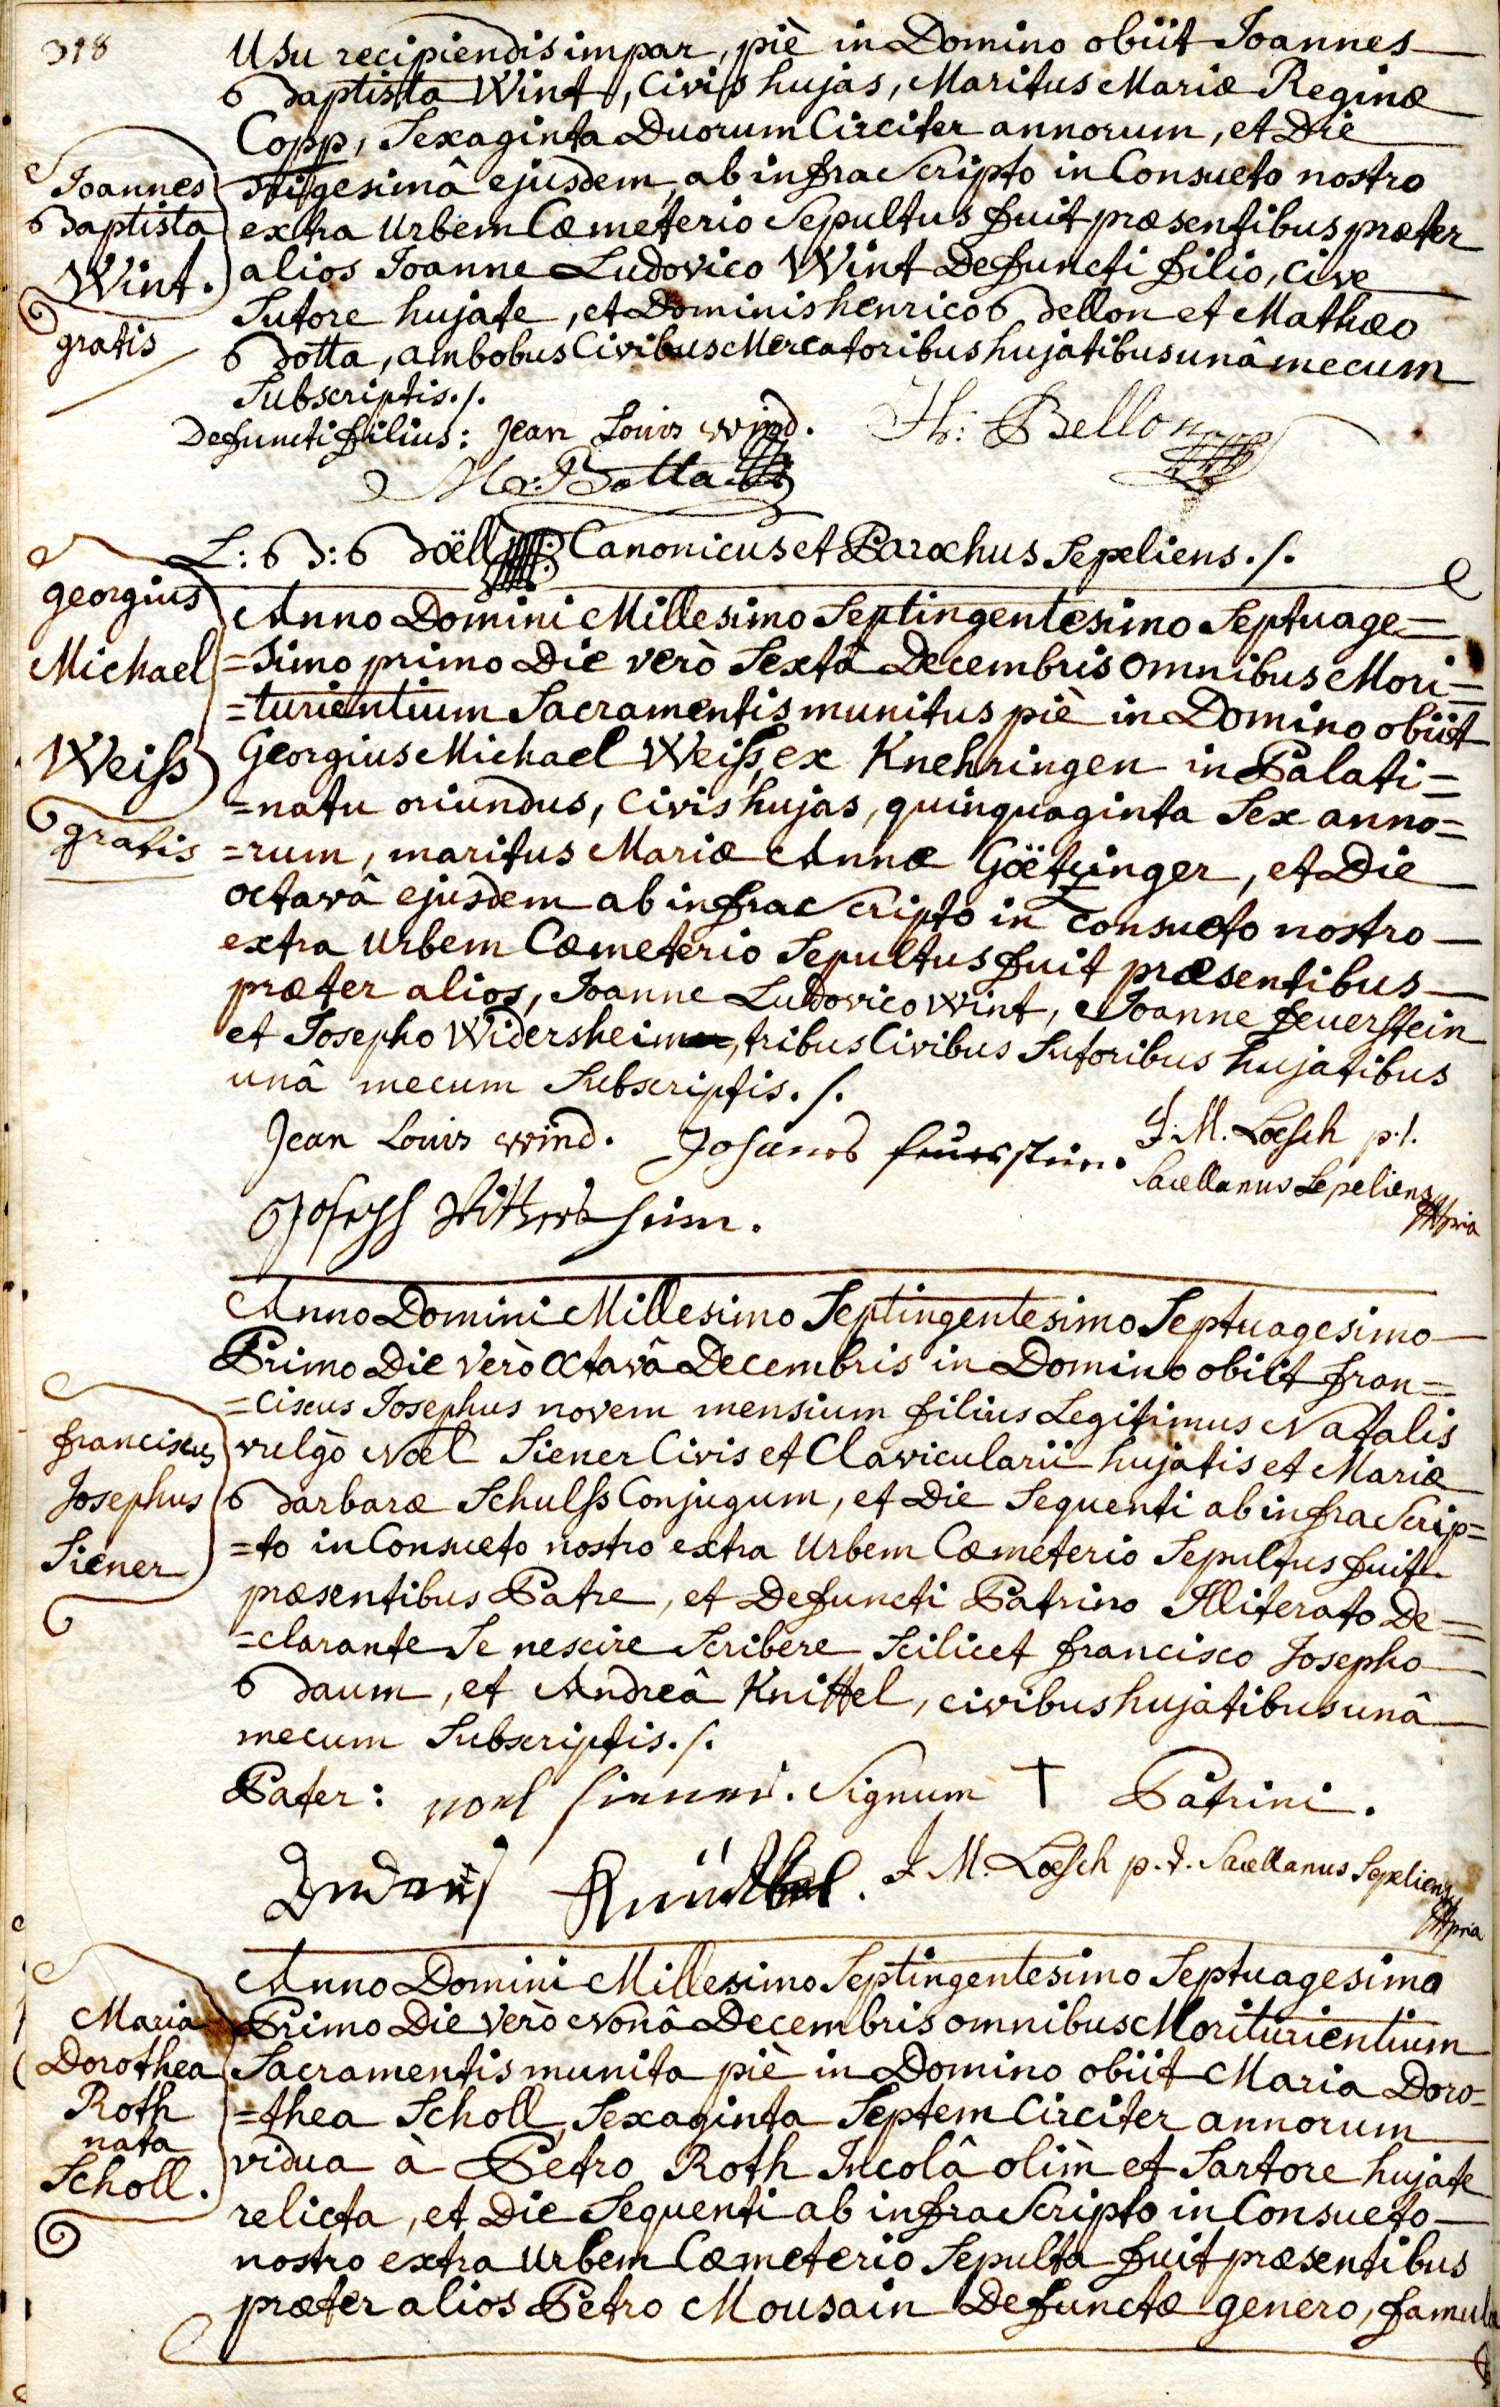 318
Usu recipiendis impar, piè in Domino obiit Joannes
Baptista Wint, Civis hujas, Maritus Mariæ Reginæ
Copp, Sexaginta Duorum Circiter annorum, et Die
Trigesimâ ejusdem, ab infra Scripto in Consueto nostro
extra Urbem Cœmeterio Sepultus fuit præsentibus præter
alios Joanne Ludovico Wint Defuncti filio, Cive
Sutore hujate, et Dominis henrico Bellon et Mathæo
Botta, ambobus Civibus Mercatoribus hujatibus unâ mecum
Subscriptis./.
Joannes
Baptista
Wint.
gratis
Defuncti filius: Jean Louis wind. H: Bellon
M: Botta
L: B: Böell Canonicus et Parochus Sepeliens./.
georgius
Michael
Weiss
gratis
Anno Domini Millesimo Septingentesimo Septuage=
=simo primo Die verò Sextâ Decembris omnibus Mori=
=turientium Sacramentis munitus piè in Domino obiit
Georgius Michael Weiss, ex Knehringen in Palati=
=natu oriundus, Civis hujas, quinquaginta Sex anno=
=rum, maritus Mariæ Annæ Göetzinger, et Die
octavâ ejusdem ab infra Scripto in Consueto nostro
extra Urbem Cœmeterio Sepultus fuit præsentibus
præter alios, Joanne Ludovico Wint, Joanne feuerstein
et Josepho Widersheim, tribus Civibus Sutoribus hujatibus
unâ mecum Subscriptis./.
Jean Louis wind. Johanes feuerstein. J. M. Loesch p.t.
Sacellanus Sepeliens mpria
Joseph Withersheim.
Anno Domini Millesimo Septingentesimo Septuagesimo
Primo Die verò Octavâ Decembris in Domino obiit fran=
=ciscus Josephus novem mensium filius Legitimus Natalis
vulgò Noel Siener Civis et Clavicularii hujatis et Mariæ
Barbaræ Schulss Conjugum, et Die Sequenti ab infra Scrip=
=to in Consueto nostro extra Urbem Cœmeterio Sepultus fuit
præsentibus Patre, et Defuncti Patrino Illiterato De=
=clarante Se nescire Scribere Scilicet francisco Josepho
Baum, et Andreâ Knittel, civibus hujatibus unâ
mecum Subscriptis./.
franciscus
Josephus
Siener
Pater: noel siener. Signum † Patrini.
Andreas Knittel. J. M. Loesch p.t. Sacellanus Sepeliens
mpria
Maria
Dorothea
Roth
nata
Scholl.
Anno Domini Millesimo Septingentesimo Septuagesimo
Primo Die verò Nonâ Decembris omnibus Moriturientium
Sacramentis munita piè in Domino obiit Maria Doro=
=thea Scholl, Sexaginta Septem Circiter annorum
vidua à Petro Roth Incolâ olim et Sartore hujate
relicta, et Die Sequenti ab infra Scripto in Consueto
nostro extra Urbem Cœmeterio Sepulta fuit præsentibus
præter alios Petro Mousain Defunctæ genero, famulo